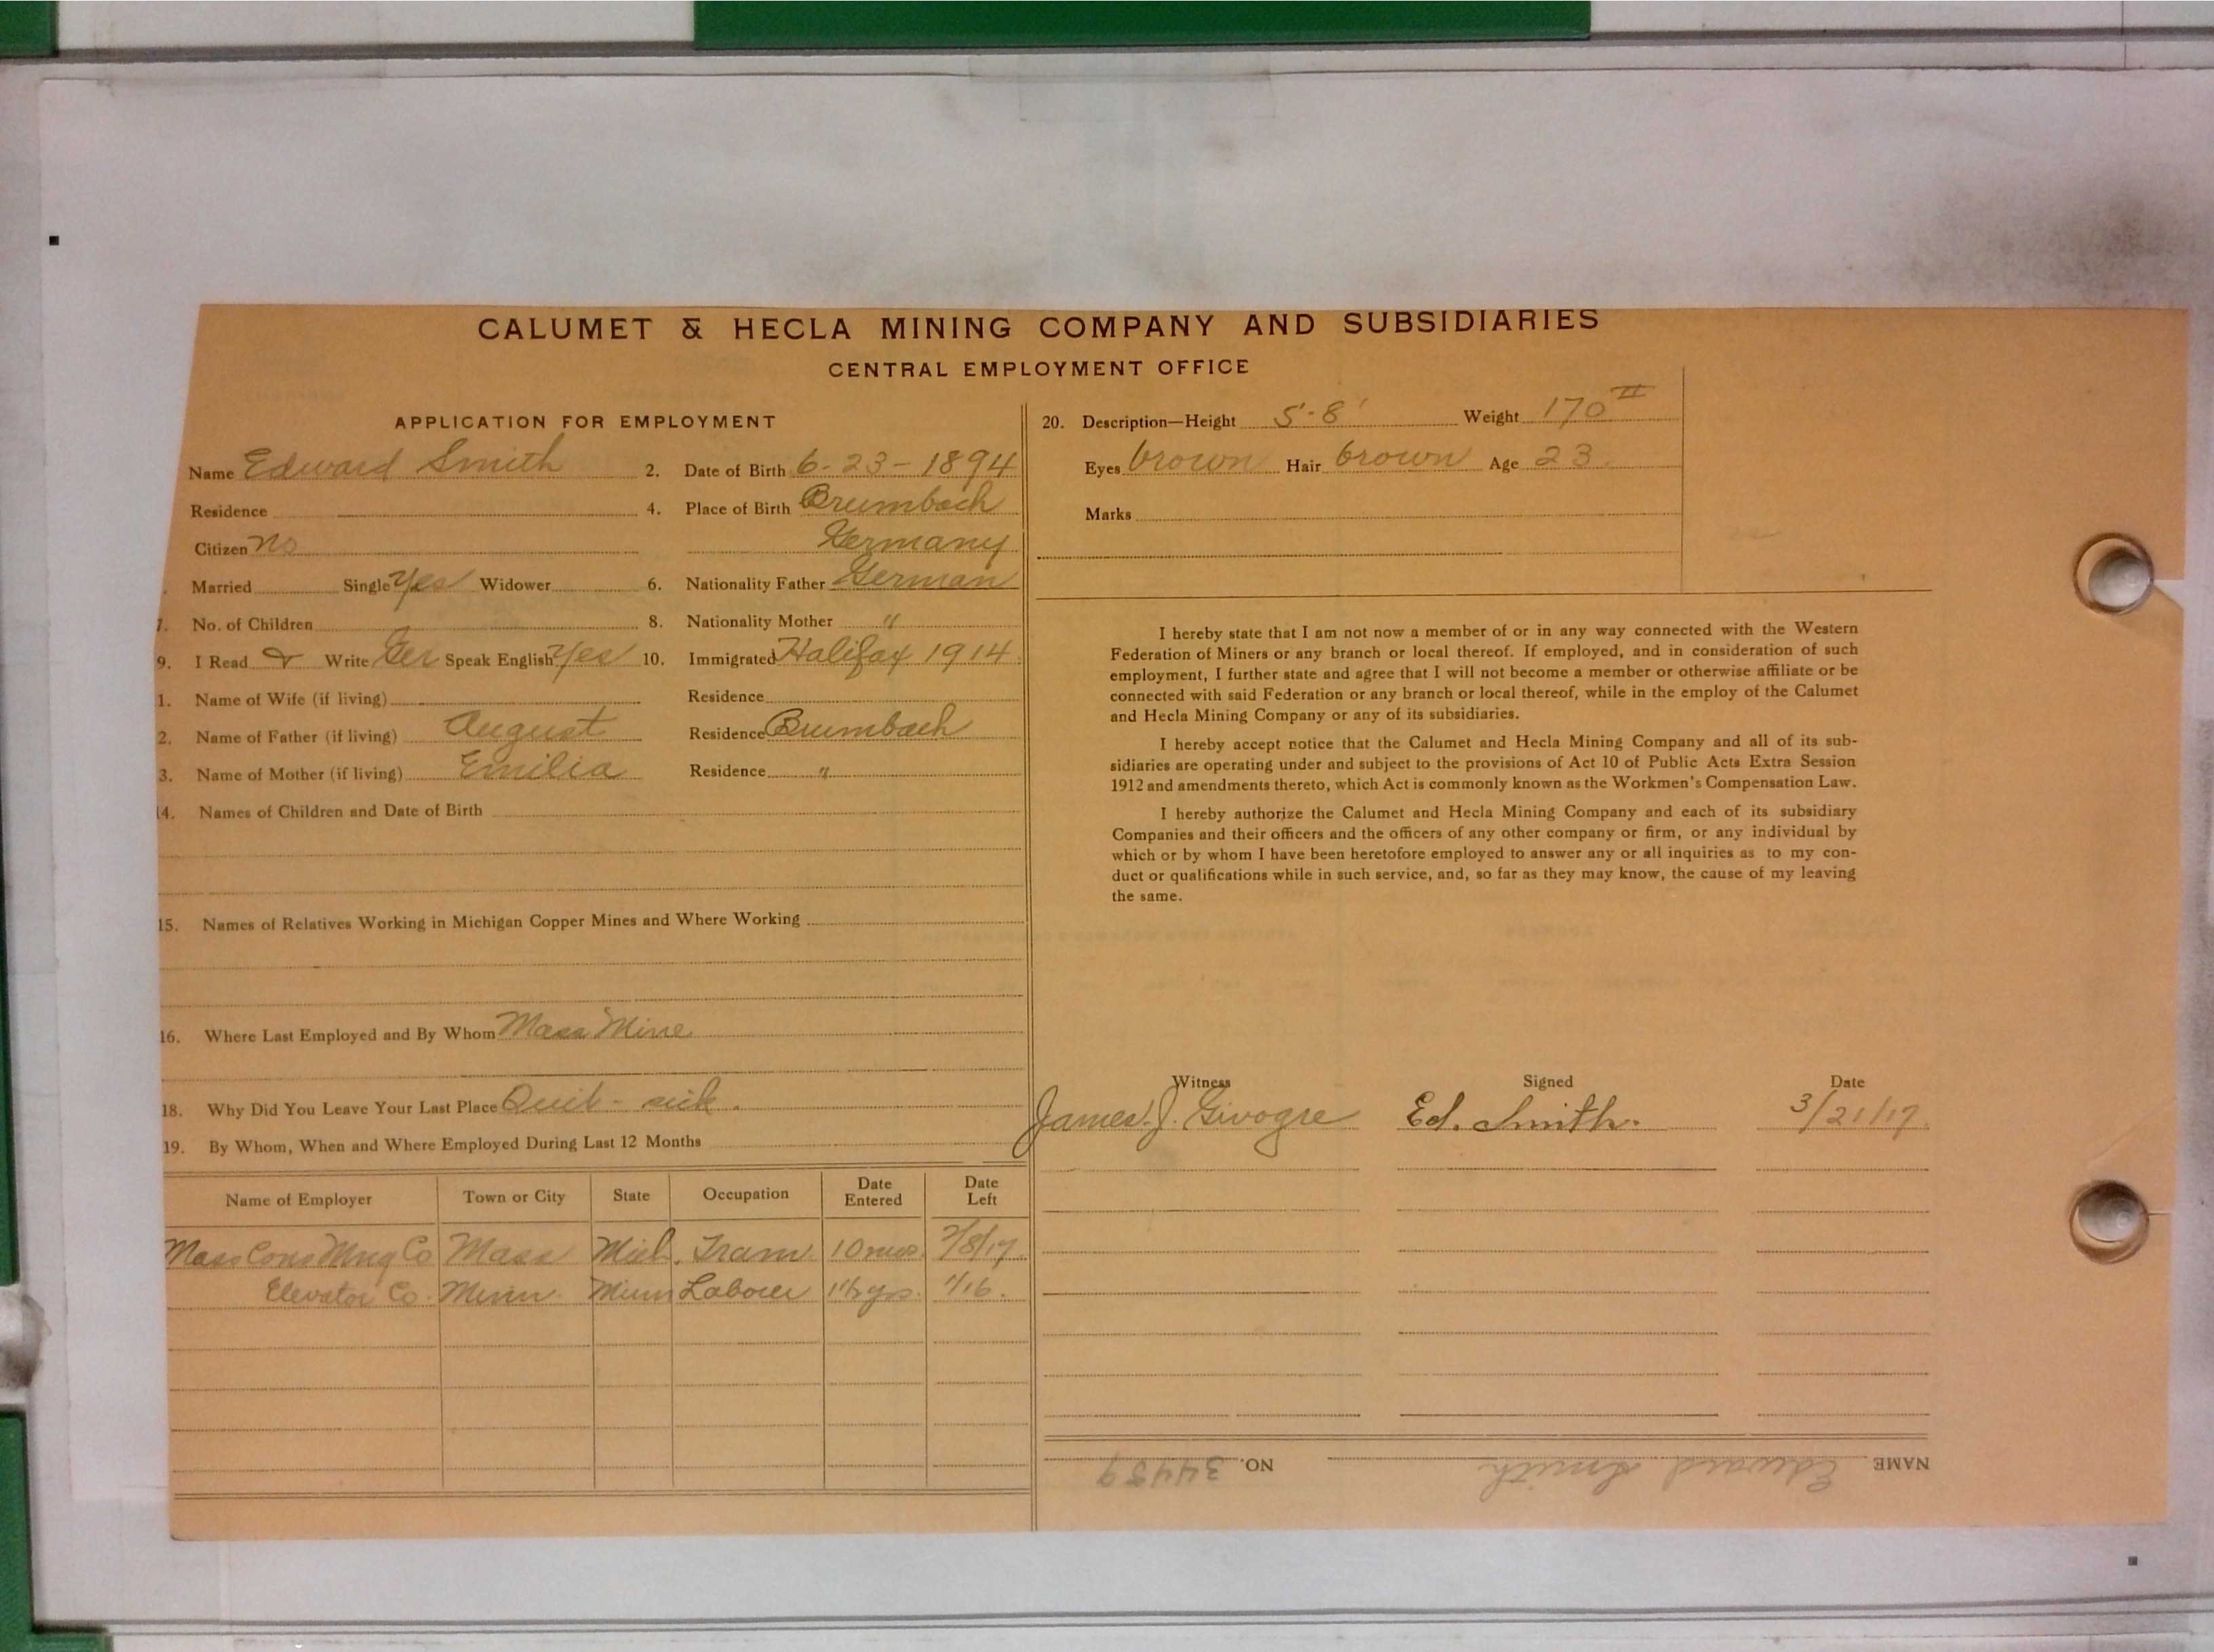 CALUMET & HECLA MINING COMPANY AND SUBSIDIARIES
CENTRAL EMPLOYMENT OFFICE
APPLICATION FOR EMPLOYMENT
Name Edward Smith 2. Date of Birth 6-23-1894
Residence 4. Place of Birth Brumbach
Citizen No Germany
Married Single Yes Widower 6. Nationality Father German
7. No. of Children 8. Nationality Mother "
9. I Read & Write Ger Speak English Yes 10. Immigrated Halifax 1914
1. Name of Wife (if living) Residence
2. Name of Father (if living) August Residence Brumbach
3. Name of Mother (if living) Emilia Residence "
14. Names of Children and Date of Birth
15. Names of Relatives Working in Michigan Copper Mines and Where Working
16. Where Last Employed and By Whom Mass Mine
18. Why Did You Leave Your Last Place Quit - sick.
19. By Whom, When and Where Employed During Last 12 Months
Name of Employer Town or City State Occupation Date Entered Date Left
Mass Cons Mng Co Mass Mich. Tram 10 mos. 2/8/17
Elevator Co. Minn. Minn Laborer 1 1/2 yrs. 1/16.
20. Description—Height 5'-8' Weight 170
Eyes brown Hair brown Age 23.
Marks
I hereby state that I am not now a member of or in any way connected with the Western
Federation of Miners or any branch or local thereof. If employed, and in consideration of such
employment, I further state and agree that I will not become a member or otherwise affiliate or be
connected with said Federation or any branch or local thereof, while in the employ of the Calumet
and Hecla Mining Company or any of its subsidiaries.
I hereby accept notice that the Calumet and Hecla Mining Company and all of its sub-
sidiaries are operating under and subject to the provisions of Act 10 of Public Acts Extra Session
1912 and amendments thereto, which Act is commonly known as the Workmen's Compensation Law.
I hereby authorize the Calumet and Hecla Mining Company and each of its subsidiary
Companies and their officers and the officers of any other company or firm, or any individual by
which or by whom I have been heretofore employed to answer any or all inquiries as to my con-
duct or qualifications while in such service, and, so far as they may know, the cause of my leaving
the same.
Witness Signed Date
James J. Givogre Ed. Smith. 3/21/17
NAME Edward Smith NO. 34459